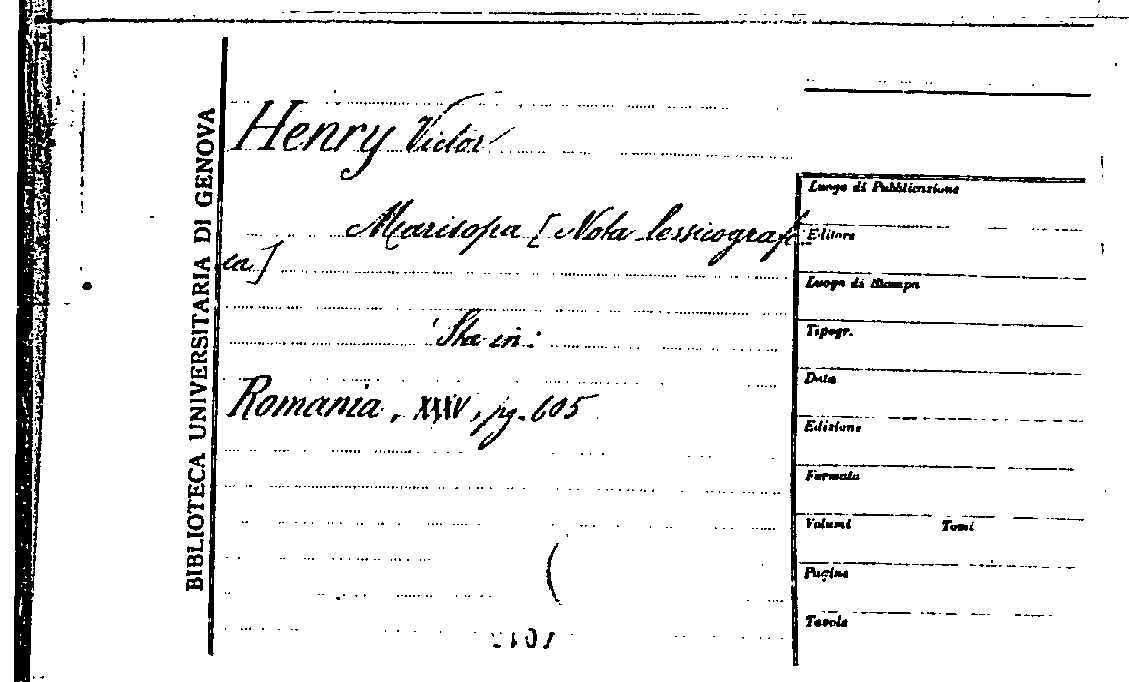 BIBLIOTECA UNIVERSITARIA DI GENOVA
Henry Victor
Maricopa [Nota lessicografi
ca]
Sta in:
Romania, XXXV, pg. 605
Luogo di Pubblicazione
Editore
Luogo di Stampa
Tipogr.
Data
Edizione
Formato
Volumi Tomi
Pagine
Tavole